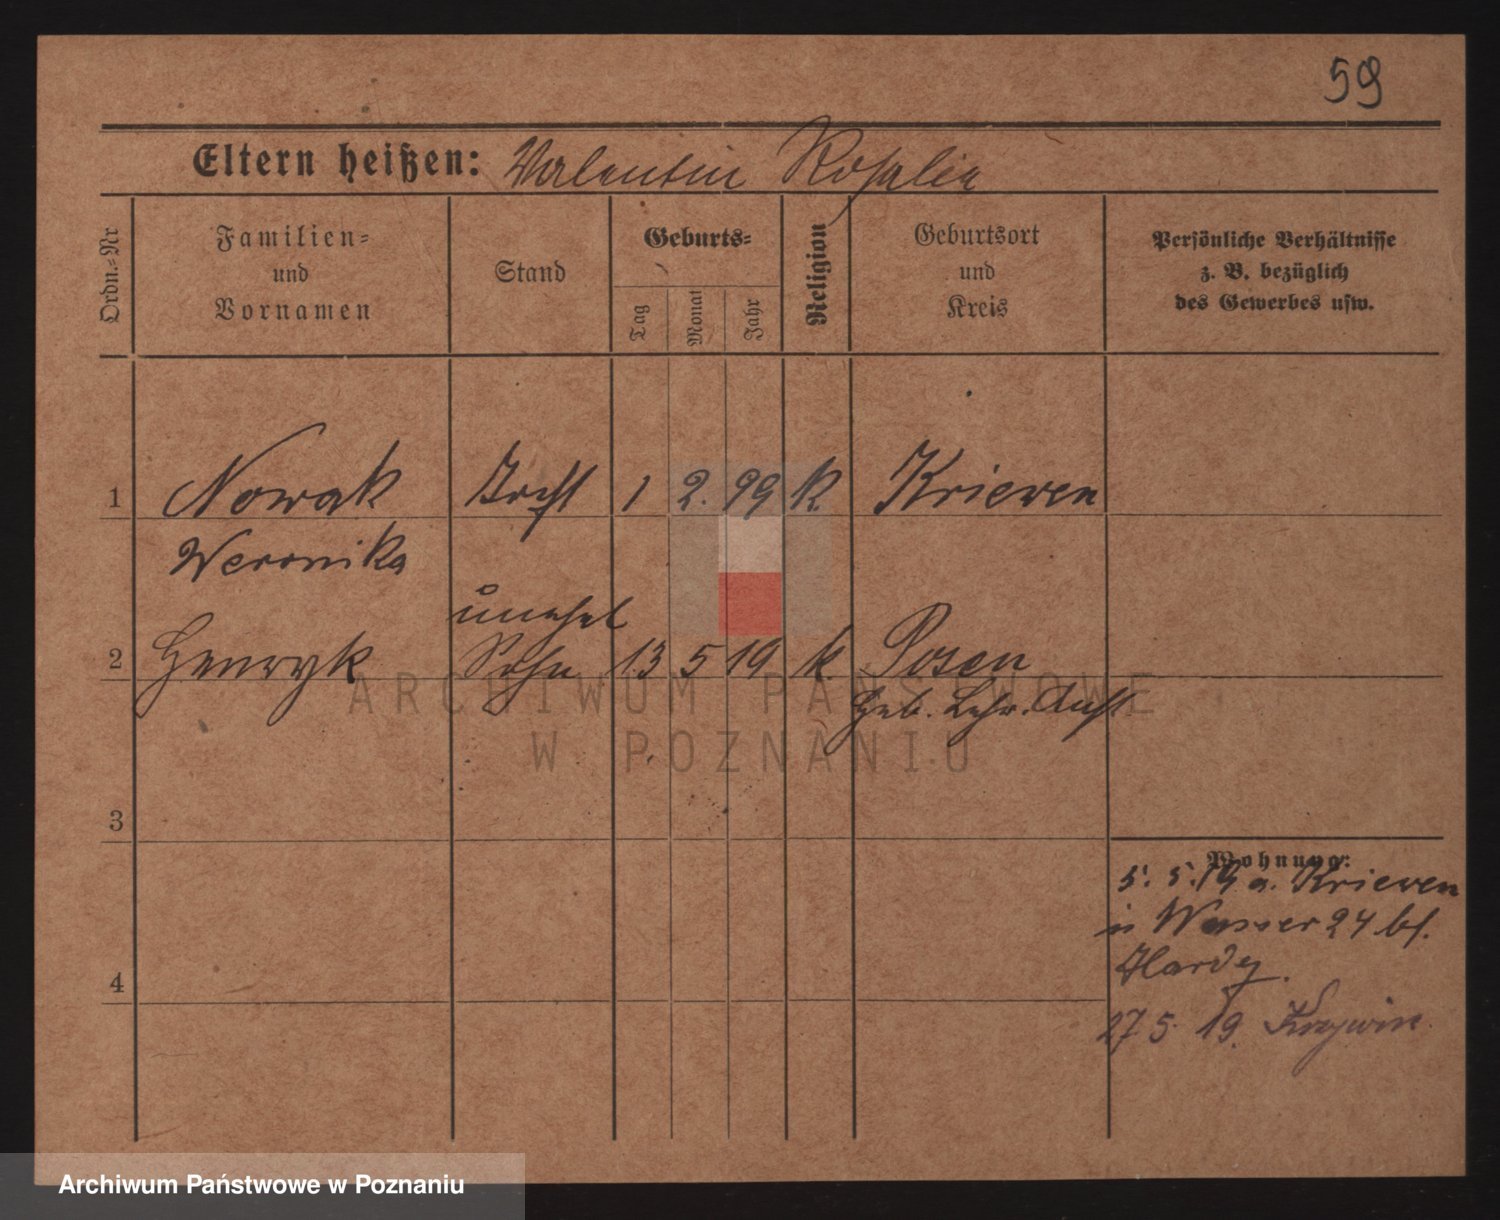 59
Eltern heißen: Valentin Rosalie
Ordn.-Nr
Familien-
und
Vornamen
Stand
Geburts-
Tag
Monat
Jahr
Religion
Geburtsort
und
Kreis
Persönliche Verhältnisse
z. B. bezüglich
des Gewerbes usw.
1 Nowak 1 2. 99 K Krieven
Weronika
unehel
2 Henryk Sohn 13 5 19 k. Posen
Geb. Lehr. Anst
3
Wohnung:
5. 5. 19 a. Krieven
in Wasser 24 bf.
4
27 5. 19.
ARCHIWUM PAŃSTWOWE
W POZNANIU
Archiwum Państwowe w Poznaniu